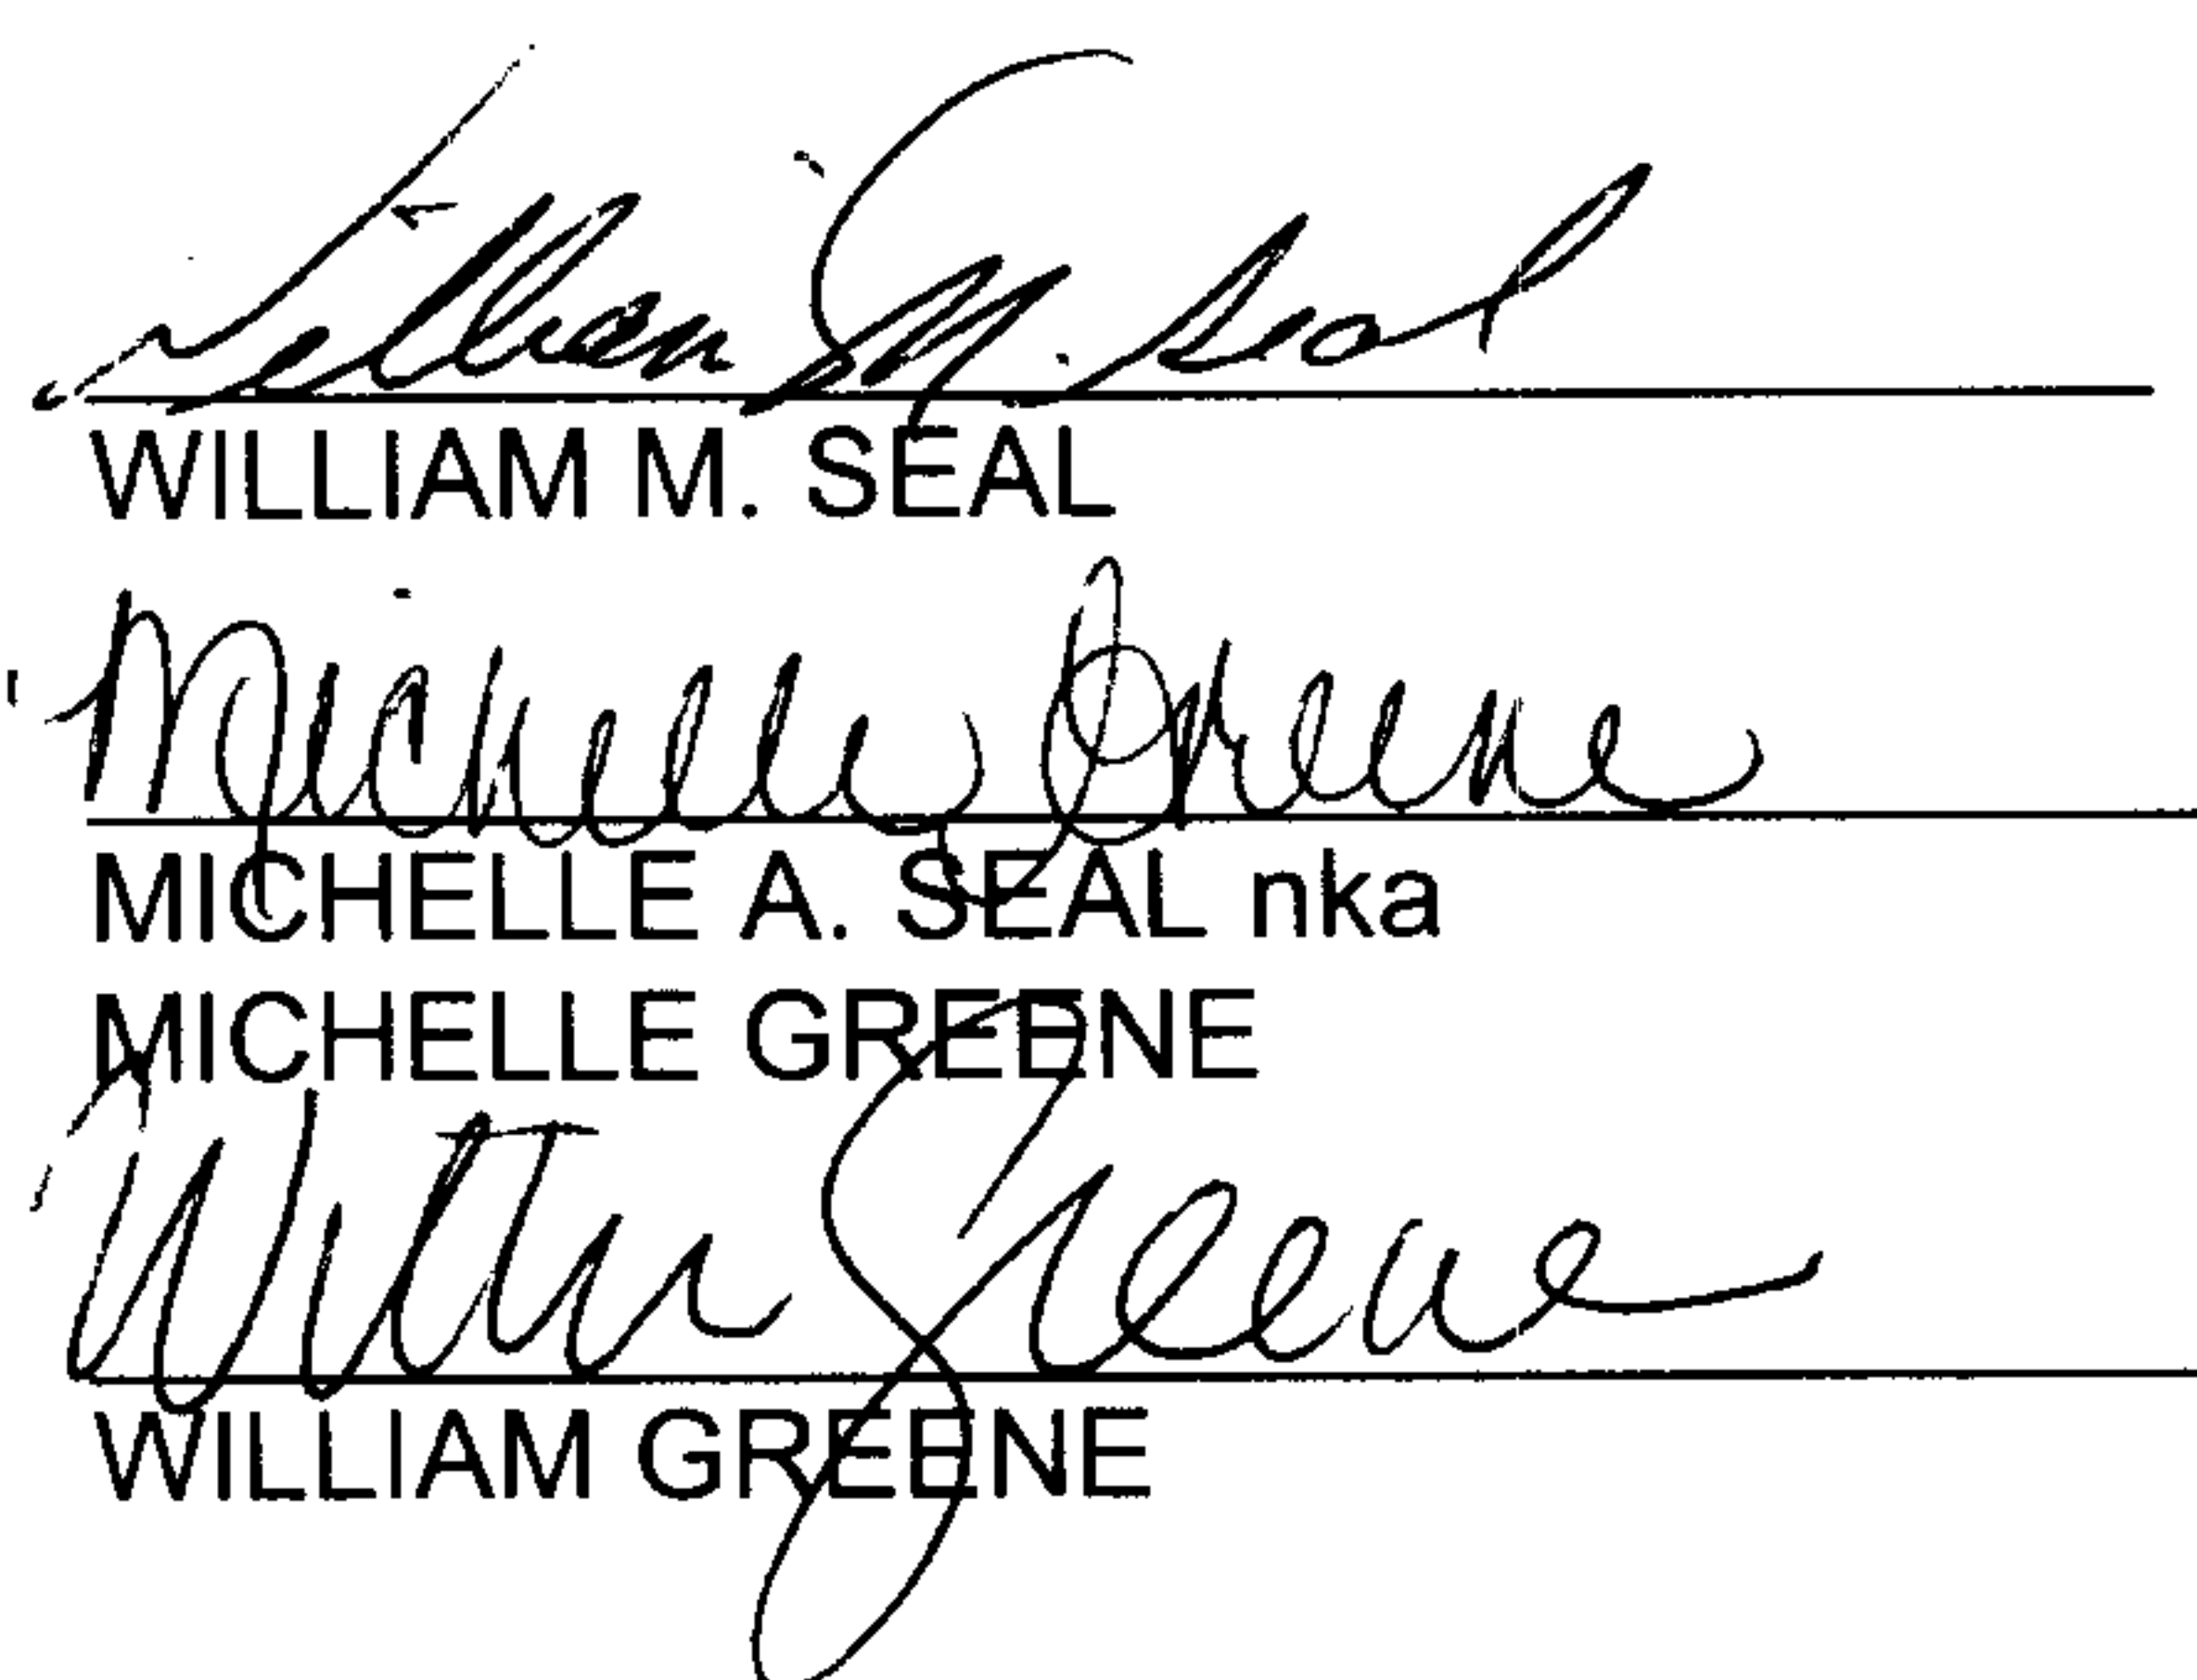 William M. Seal
WILLIAM M. SEAL
Michelle Greene
MICHELLE A. SEAL nka
MICHELLE GREENE
William Greene
WILLIAM GREENE